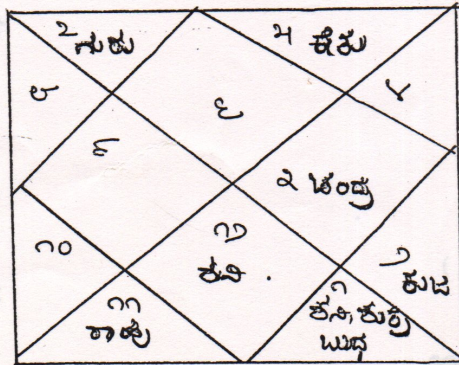 ೭ ಗುರು
೫ ಕೇತು
೮
೬
೪
೯
೩ ಚಂದ್ರ
೧೦
೧೨
ರವಿ
೨
ಕುಜ
೧೧
ರಾಹು
೧
ಶನಿ, ಶುಕ್ರ
ಬುಧ